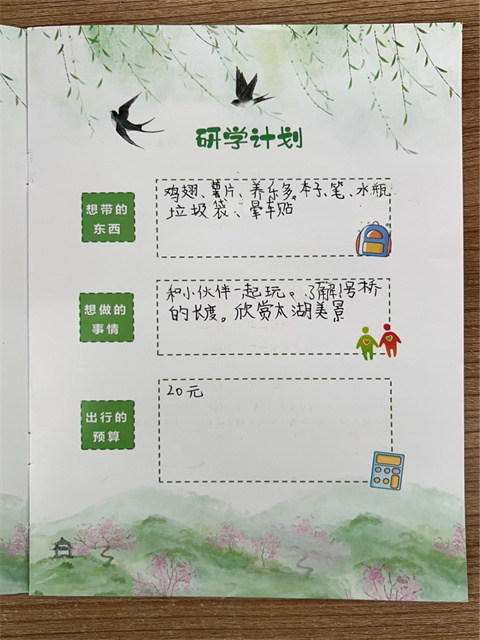 研学计划
想带的
东西
鸡翅、薯片、养乐多、本子、笔、水瓶
垃圾袋、晕车贴
想做的
事情
和小伙伴一起玩。了解1号桥
的长度。欣赏太湖美景
出行的
预算
20元